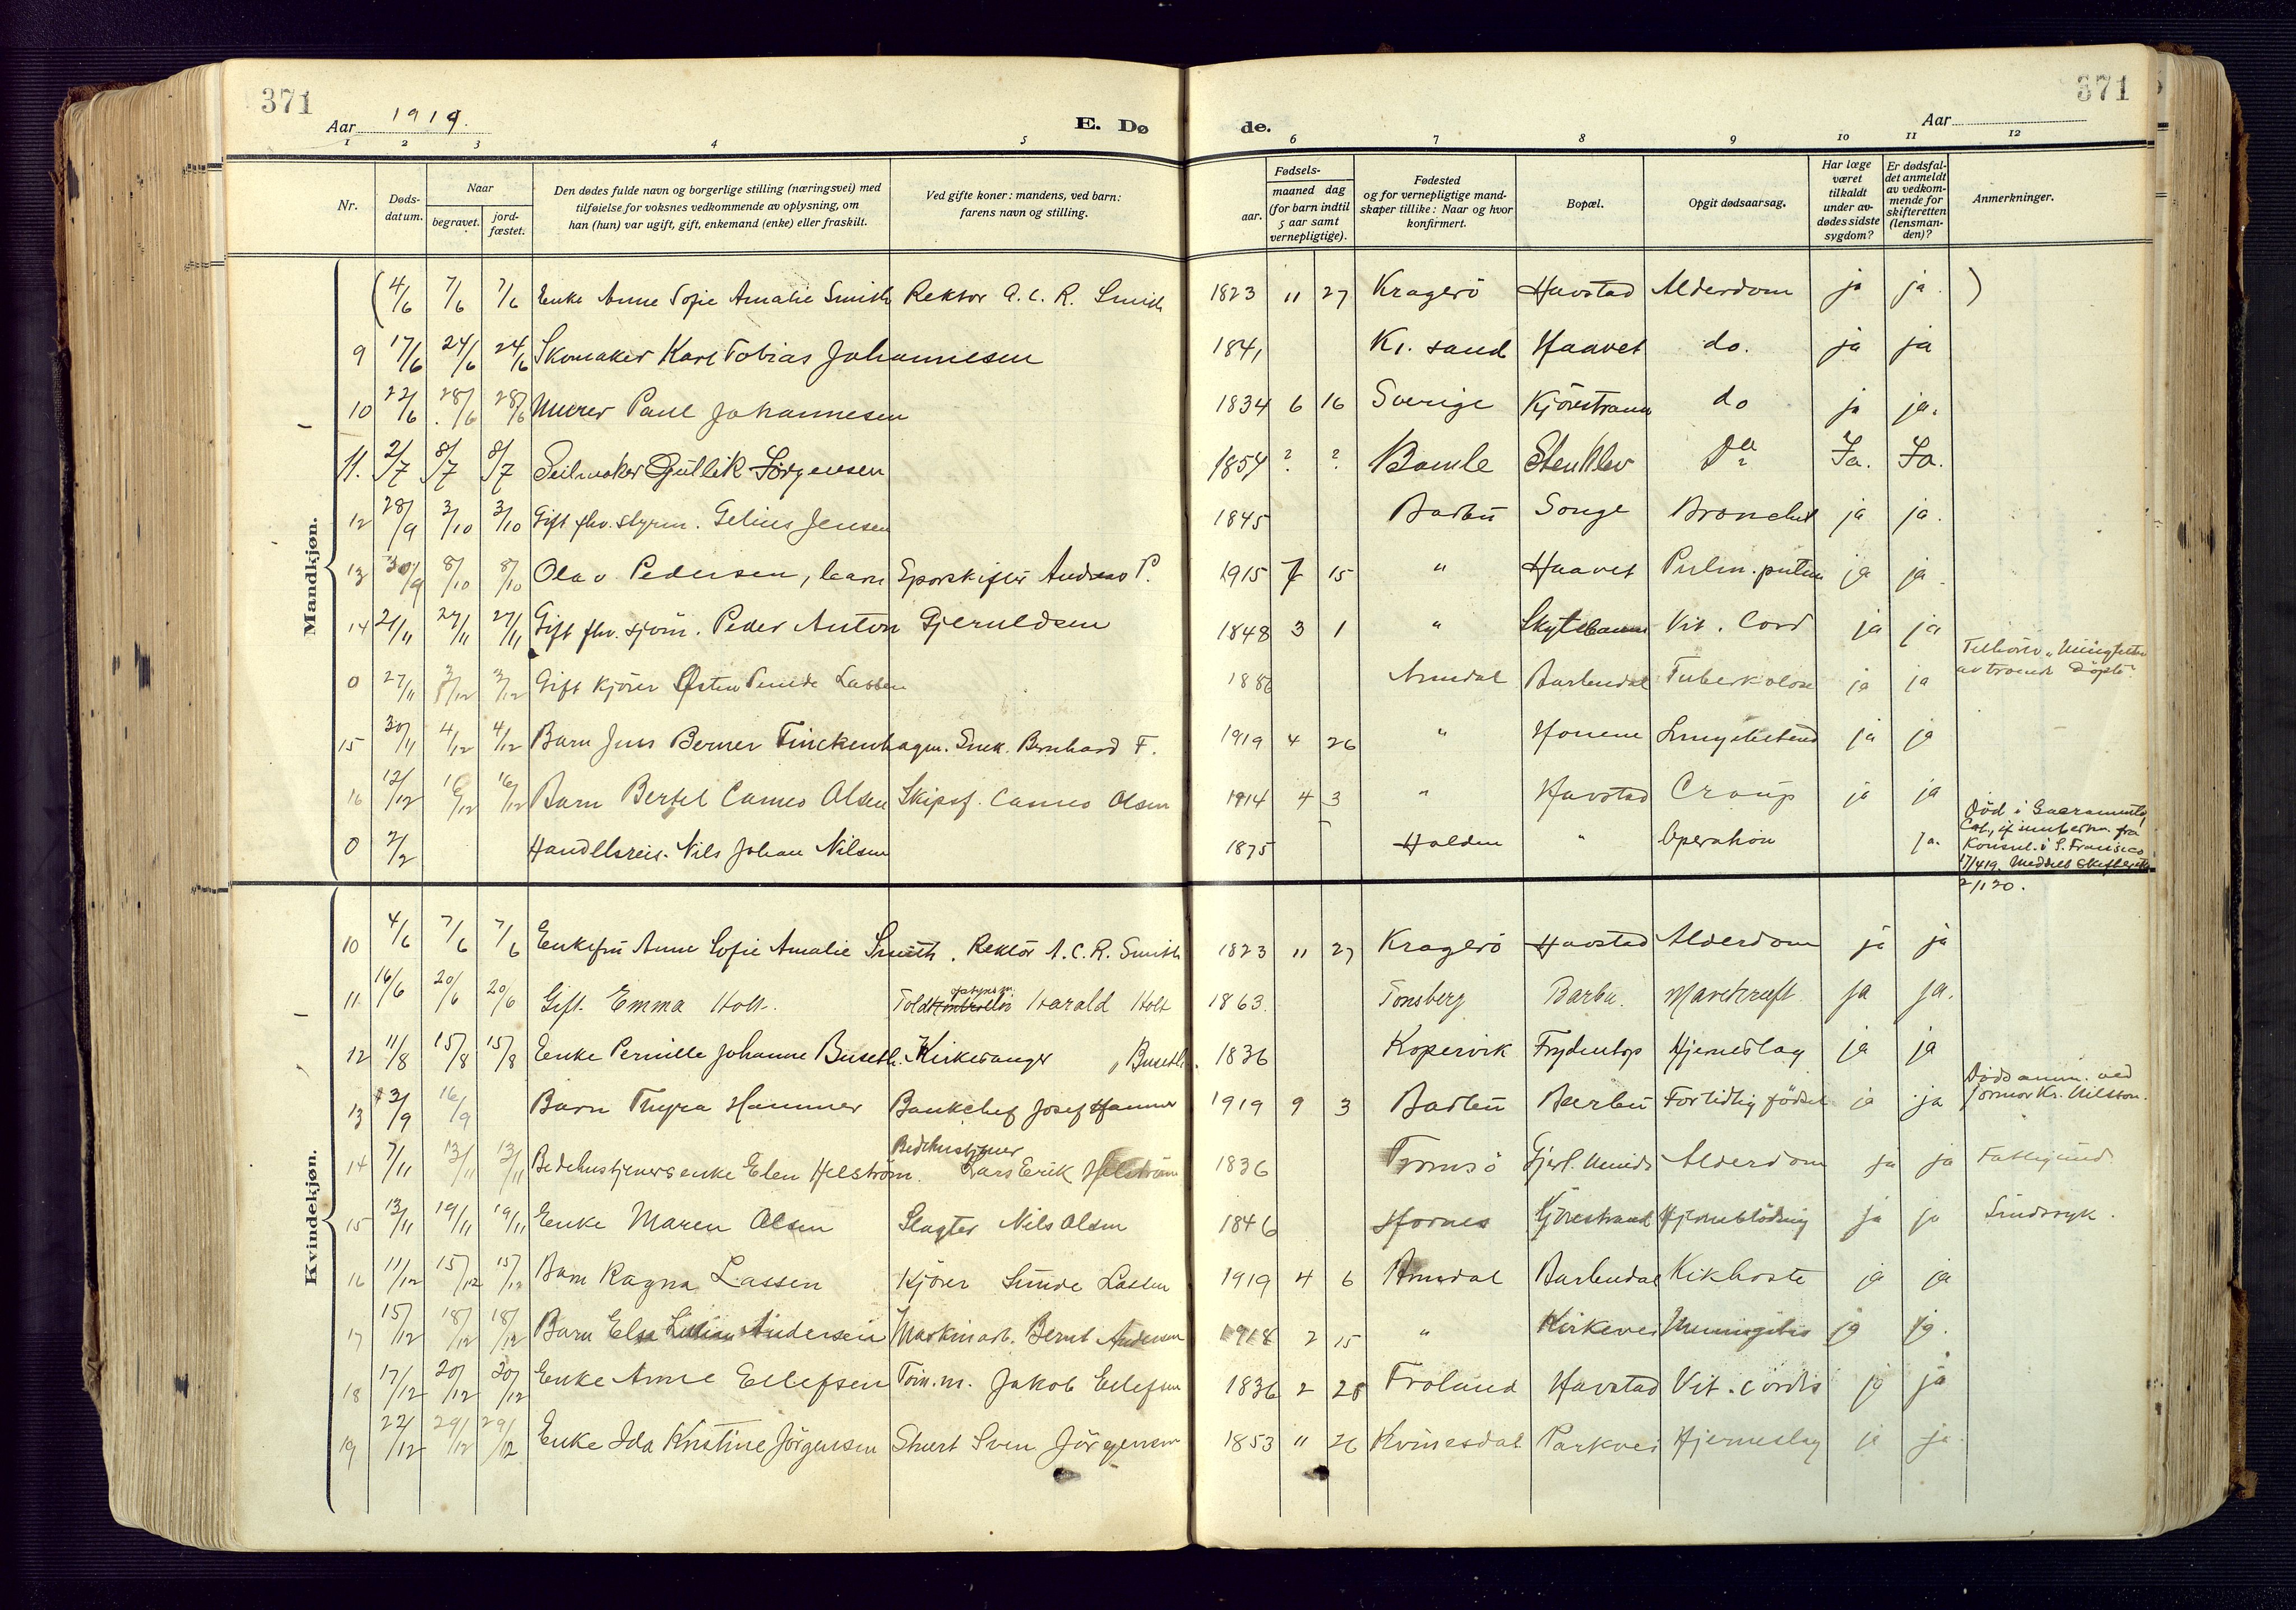 371
371
Aar 1919.
E. Dø
de.
Aar
1 2 3 4 5 6 7 8 9 10 11 12
Nr.
Døds-
datum.
Naar
begravet.
jord-
fæstet.
Den dødes fulde navn og borgerlige stilling (næringsvei) med
tilføielse for voksnes vedkommende av oplysning, om
han (hun) var ugift, gift, enkemand (enke) eller fraskilt.
Ved gifte koner: mandens, ved barn:
farens navn og stilling.
Fødsels-
aar.
maaned dag
(for barn indtil
5 aar samt
vernepligtige).
Fødested
og for vernepligtige mand-
skaper tillike: Naar og hvor
konfirmert.
Bopæl.
Opgit dødsaarsag.
Har læge
været
tilkaldt
under av-
dødes sidste
sygdom?
Er dødsfal-
det anmeldt
av vedkom-
mende for
skifteretten
(lensman-
den)?
Anmerkninger.
Mandkjøn.
( 4/6 7/6 7/6 Enke Anne Sofie Amalie Smith Rektor A. C. R. Smith 1823 11 27 Kragerö Havstad Alderdom ja ja. )
9 17/6 24/6 24/6 Skomaker Karl Tobias Johannesen 1841 Kr. sand Haavet do. ja ja
10 22/6 28/6 28/6 Murer Paul Johannesen 1834 6 16 Sverige Kjörestrann do ja ja.
11. 2/7 8/7 8/7 Seilmaker Gullik Jörgensen 1854 ? ? Bamle Stenklev Ja. Ja.
12 28/9 3/10 3/10 Gift fhv. styrm. Gelius Jensen 1845 Barbu Songe Bronchit ja ja.
13 30/9 8/10 8/10 Olav Pedersen, barn Sporskifter Andreas P. 1915 7 15 " Haavet Pulm. ja ja.
14 21/11 27/11 27/11 Gift fhv. sjöm. Peder Anton Gjeruldsen 1848 3 1 " Skytebanen Vit. Cord ja ja
0 27/11 3/12 3/12 Gift kjörer Østen Lassen Arendal Barbudal Tuberkulose ja ja
15 30/11 4/12 4/12 Barn Jens Berner Finckenhagen. Snek. Bernhard F. 1919 4 26 " ja ja
16 12/12 16/12 16/12 Barn Bertel Cameo Olsen Skipsf. Cameo Olsen 1914 4 3 " Havstad Croup ja ja
0 2/2 Handelsreis. Nils Johan Nilsen 1875 Halden " Operation Ja.
Död i Sacramento,
Cal., fra
Konsul. i S. Francisco
17/4 19. Meddelt Skifteretten
2/1 20.
Kvindekjøn.
10 4/6 7/6 7/6 Enkefru Anne Sofie Amalie Smith. Rektor A. C. R. Smith 1823 11 27 Kragerö Havstad Alderdom ja ja
11. 16/6 20/6 20/6 Gift. Emma Holt. Harald Holt 1863. Tonsberg Barbu. Mavekræft. ja ja.
12 11/8 15/8 15/8 Enke Pernille Johanne Buseth. Kirkesanger, Buseth. 1836 Kopervik Frydentop Hjerneslag ja ja
13 3/9 16/9 Barn Thyra Hammer Bankchef Josef Hammer 1919 9 3 Barbu Barbu For tidlig födsel ja ja
Dödsanm. ved
Jormor Kr. Nilsson.
Bedehustjener
14 7/11 13/11 13/11 Bedehustjenersenke Elen Helström. Lars Erik Helström 1836 Tromsö Gjerl. Minde Alderdom ja ja
15 13/11 19/11 19/11 Enke Maren Olsen Slagter Nils Olsen 1846 Hornes Kjörestrand Hjerneblödning ja ja Sindssyk.
16 11/12 15/12 15/12 Barn Ragna Lassen Kjörer Sunde Lassen 1919 4 6 Arendal Barbudal Kikhoste ja ja
17 15/12 18/12 18/12 Barn Elsa Lilian Andersen Maskinarb. Bernt Andersen 1918 2 15 " Kirkevei Meningitis ja ja.
18 17/12 20/12 20/12 Enke Anne Ellefsen Töm.m. Jakob Ellefsen 1836 2 28 Froland Havstad Vit. cordis ja ja
19 22/12 29/12 29/12 Enke Ida Kristine Jörgensen Stuert Sven Jörgensen 1853 11 26 Kvinesdal Parkvei Hjerneslag ja ja.